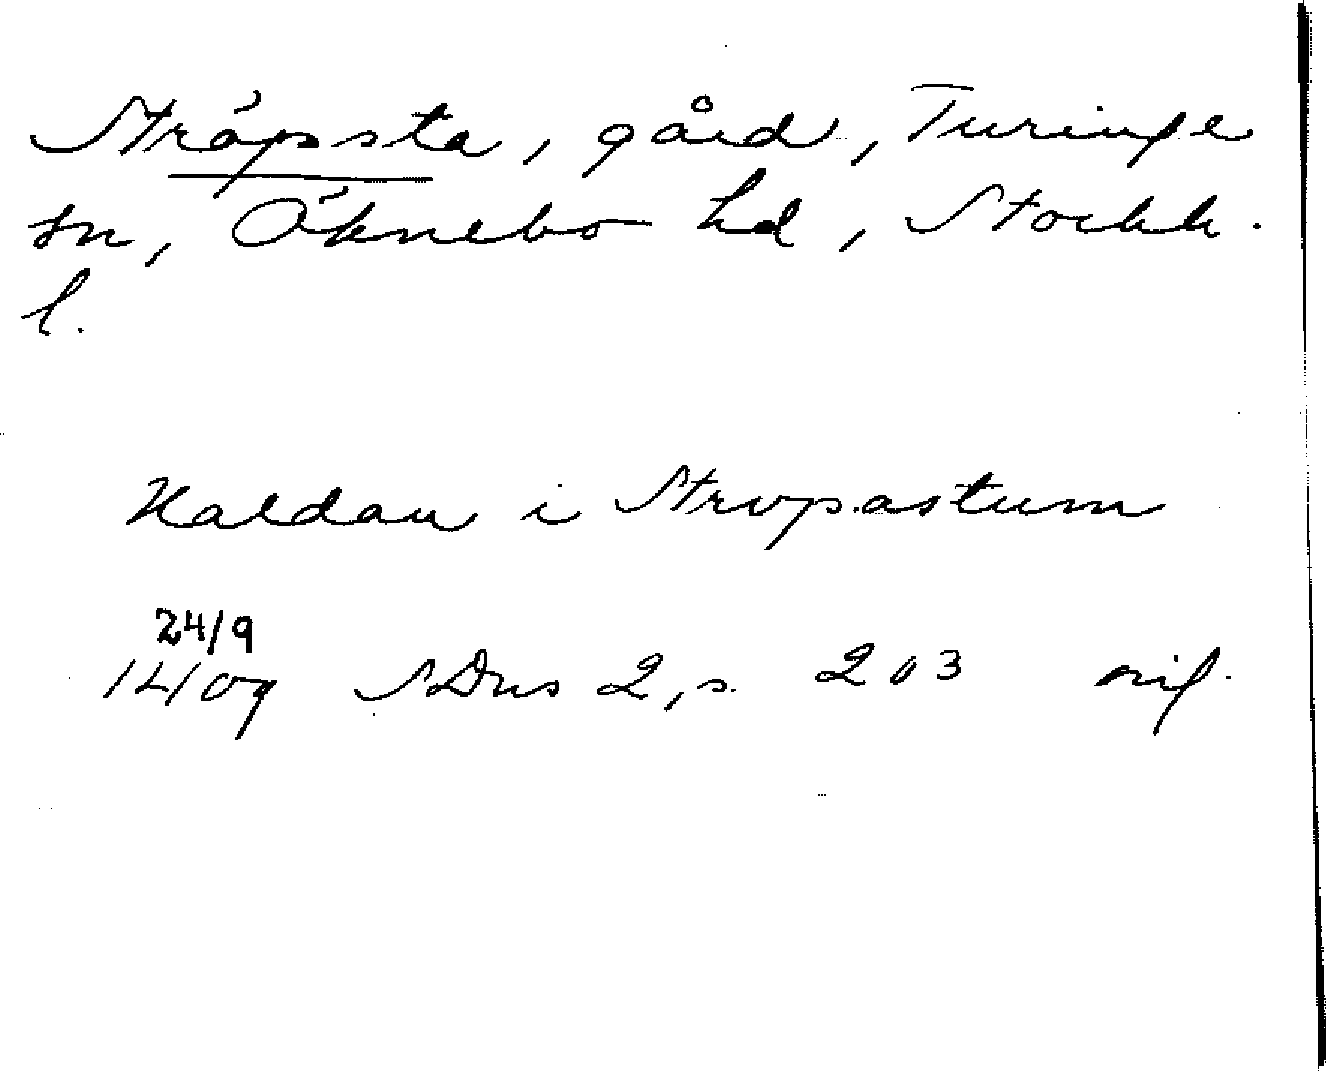 Ströpsta, gård, Turinge
sn, Öknebo hd, Stockh.
l.
Haldan i Stropastum
24/9
1409 SDns 2, s. 203 orig.